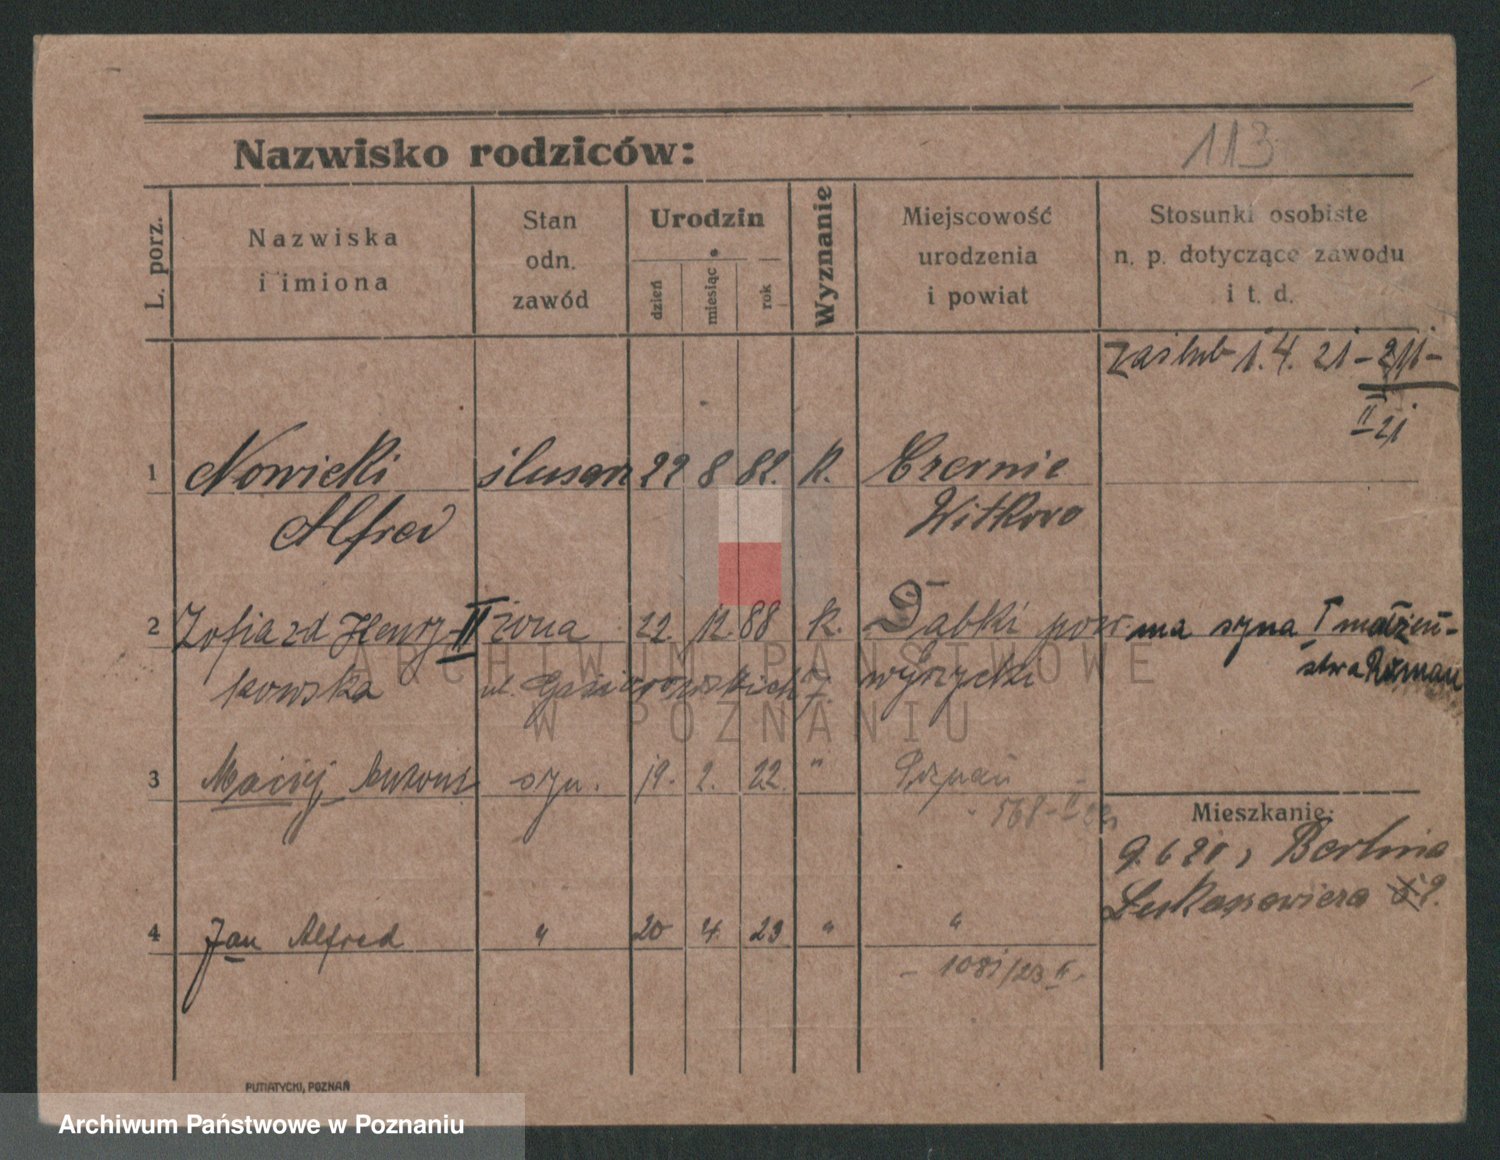 113
Nazwisko rodziców:
L. porz.
Nazwiska
i imiona
Stan
odn.
zawód
Urodzin
dzień
miesiąc
rok
Wyznanie
Miejscowość
urodzenia
i powiat
Stosunki osobiste
n. p. dotyczące zawodu
i t. d.
zaślub 1. 4. 21 - 211 -
II 21
1 Nowicki ślusarz 22 8 82. k. Czernie
Alfred Witkowo
2 Zofia zd Henry- II żona 22. 12. 88 k. Dąbki pow ma syna I małżeń-
kowska ul. Gąsiorowskich 7. wyrzycki stwa Roman
3 Maciej syn. 19. 2. 22. " Poznań -
- 568 - II 22
Mieszkanie:
9. 6 20 z Berlina
4 Jan Alfred " 20 4. 23 " "
- 1081/23 II -
PUTIATYCKI, POZNAŃ
ARCHIWUM PAŃSTWOWE
W POZNANIU
Archiwum Państwowe w Poznaniu